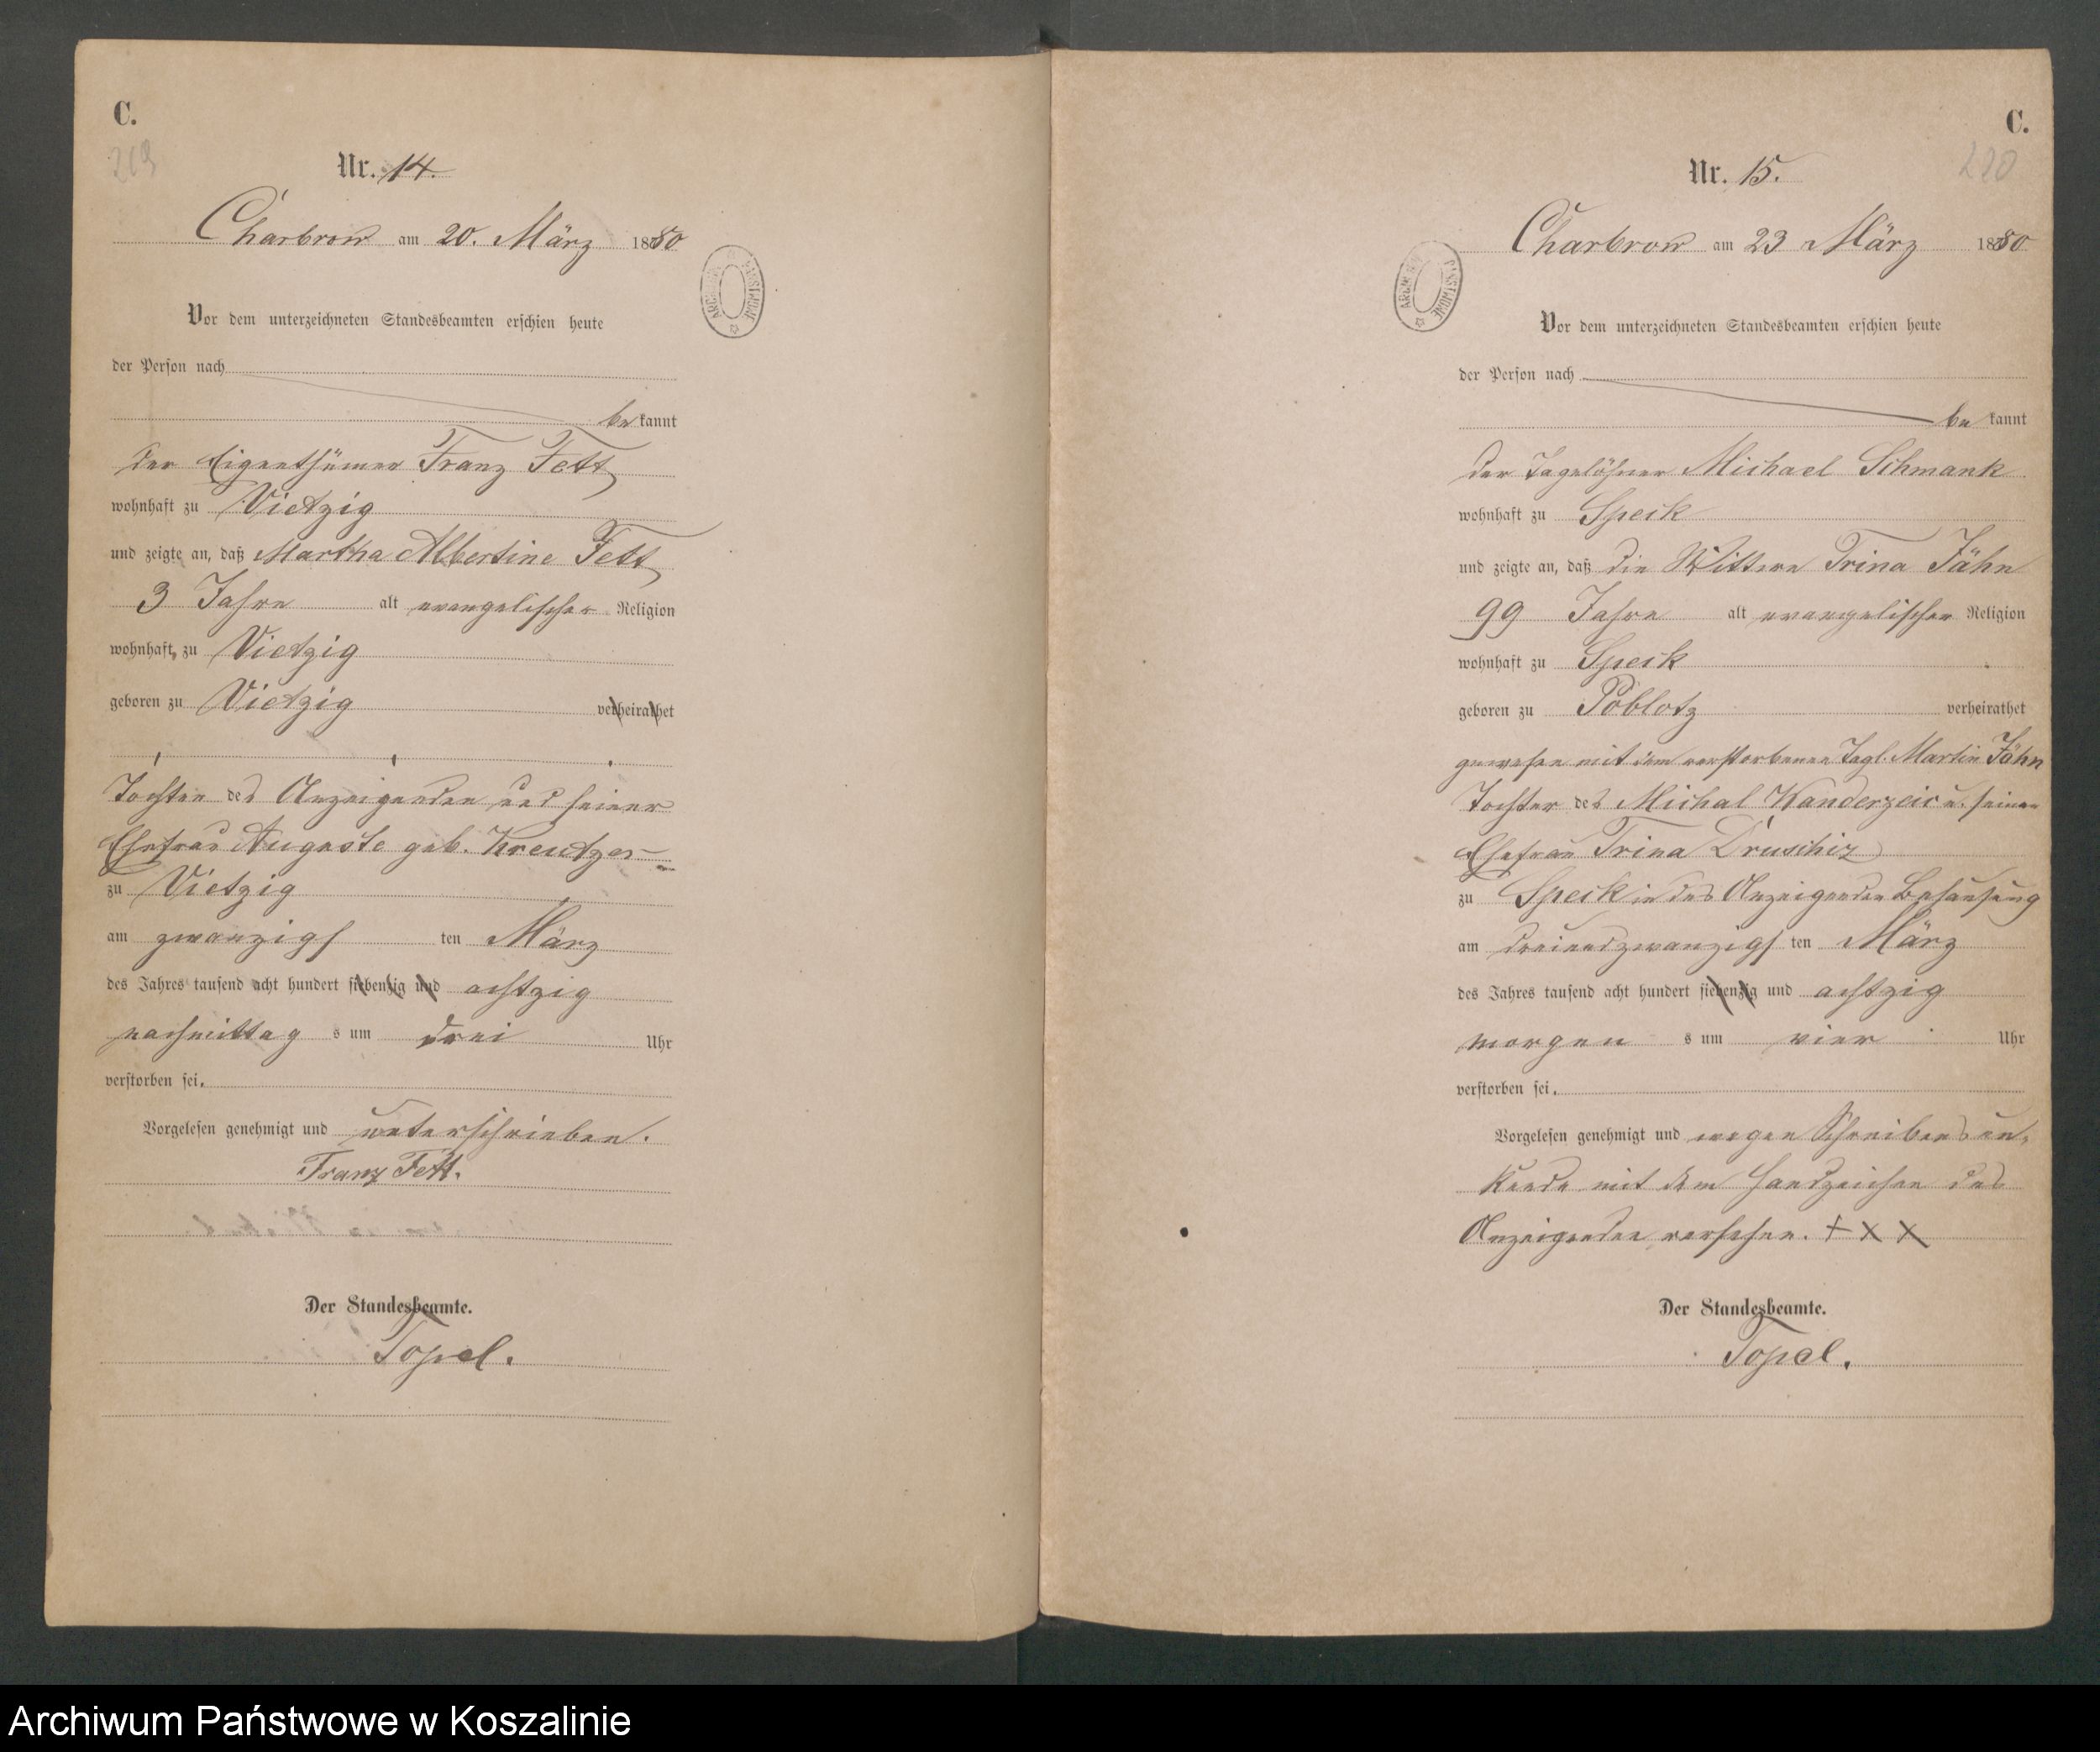 C.
219
Nr. 14.
Charbrow am 20. März 1880
Vor dem unterzeichneten Standesbeamten erschien heute
der Person nach
bekannt
der Eigenthümer Franz Fett
wohnhaft zu Vietzig
und zeigte an, daß Martha Albertine Fett
3 Jahre alt evangelischer Religion
wohnhaft zu Vietzig
geboren zu Vietzig verheirathet
Tochter des Anzeigenden und seiner
Ehefrau Auguste geb. Kreutzer
zu Vietzig
am zwanzigs ten März
des Jahres tausend acht hundert siebenzig und achtzig
nachmittag s um drei Uhr
verstorben sei.
Vorgelesen genehmigt und unterschrieben.
Franz Fett.
Der Standesbeamte.
Topel.
ARCHIWUM PAŃSTWOWE
C.
220
Nr. 15.
Charbrow am 23 März 1880
Vor dem unterzeichneten Standesbeamten erschien heute
der Person nach
bekannt
der Tagelöhner Michael Schmank
wohnhaft zu Speck
und zeigte an, daß die Wittwe Trina Jähn
99 Jahre alt evangelischer Religion
wohnhaft zu Speck
geboren zu Poblotz verheirathet
gewesen mit dem verstorbenen Tagl. Martin Jähn
Tochter des Michal Kanderzeic u. seiner
Ehefrau Trina Druschiz
zu Speck in des Anzeigenden Behausung
am dreiundzwanzigs ten März
des Jahres tausend acht hundert siebenzig und achtzig
morgen s um vier Uhr
verstorben sei.
Vorgelesen genehmigt und wegen Schreibens un-
kunde mit dem Handzeichen des
Anzeigenden versehen. + x x
Der Standesbeamte.
Topel.
ARCHIWUM PAŃSTWOWE
Archiwum Państwowe w Koszalinie